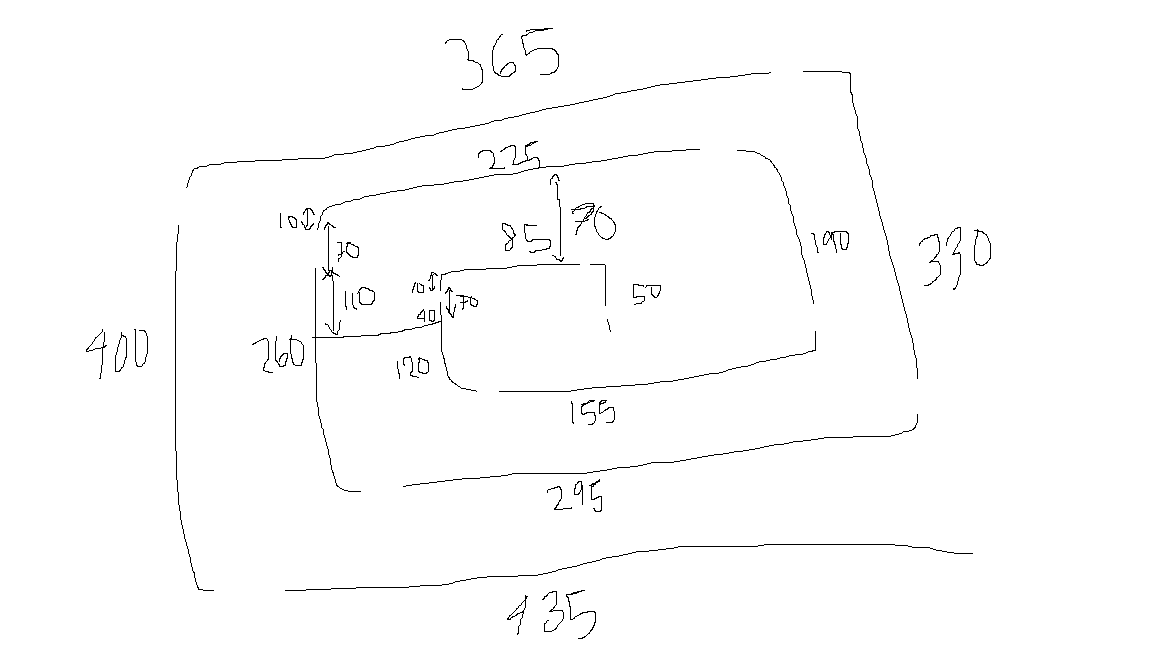 365
225
10
70
85
70
190
330
110
10
70
50
40
400
260
120
155
295
435